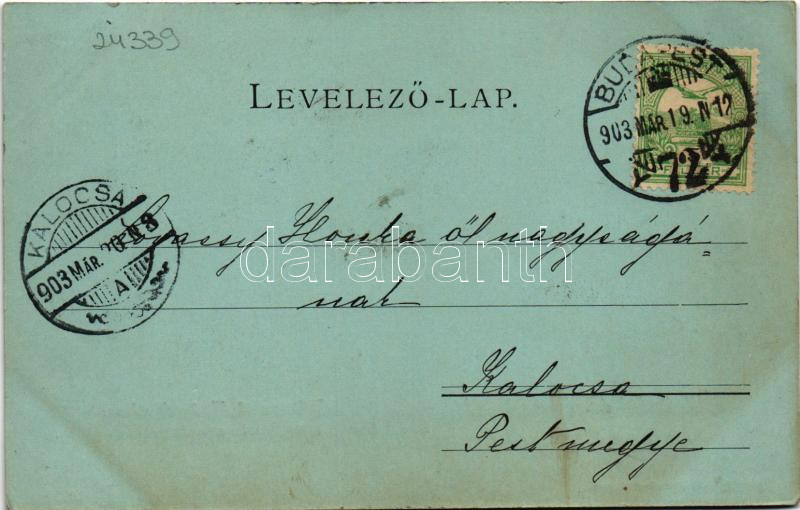 24339
LEVELEZŐ-LAP.
BUDAPEST
903 MÁR. 19. N 12
72
KALOCSA
903 MÁR. 20. N 8
A
Honka öl nagyságá-
nak
darabanth
Kalocsa
Pest megye